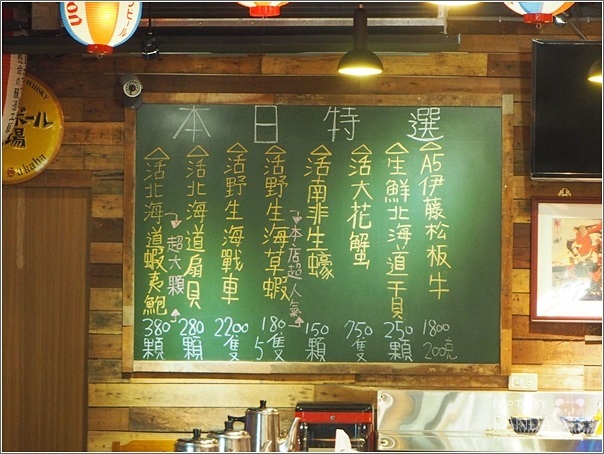 本日特選
A5伊藤松板牛
1800
200克
生鮮北海道干貝
250
顆
活大花蟹
750
隻
活南非生蠔
150
顆
本店超人氣
活野生海草蝦
180
5隻
活野生海戰車
2200
隻
活北海道扇貝
280
顆
超大顆
活北海道蝦夷鮑
380
顆
WHISKY
ボール
場